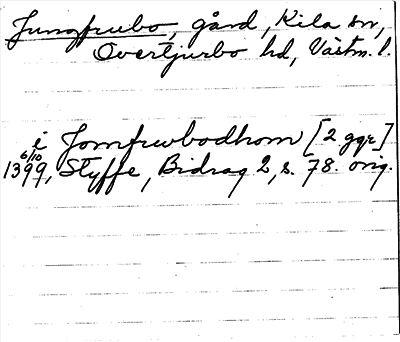 Jungfrubo, gård, Kila sn,
Övertjurbo hd, Västm. l.
i Jomfrwbodhom [2 ggr]
1399 6/10, Styffe, Bidrag 2, s. 78. orig.